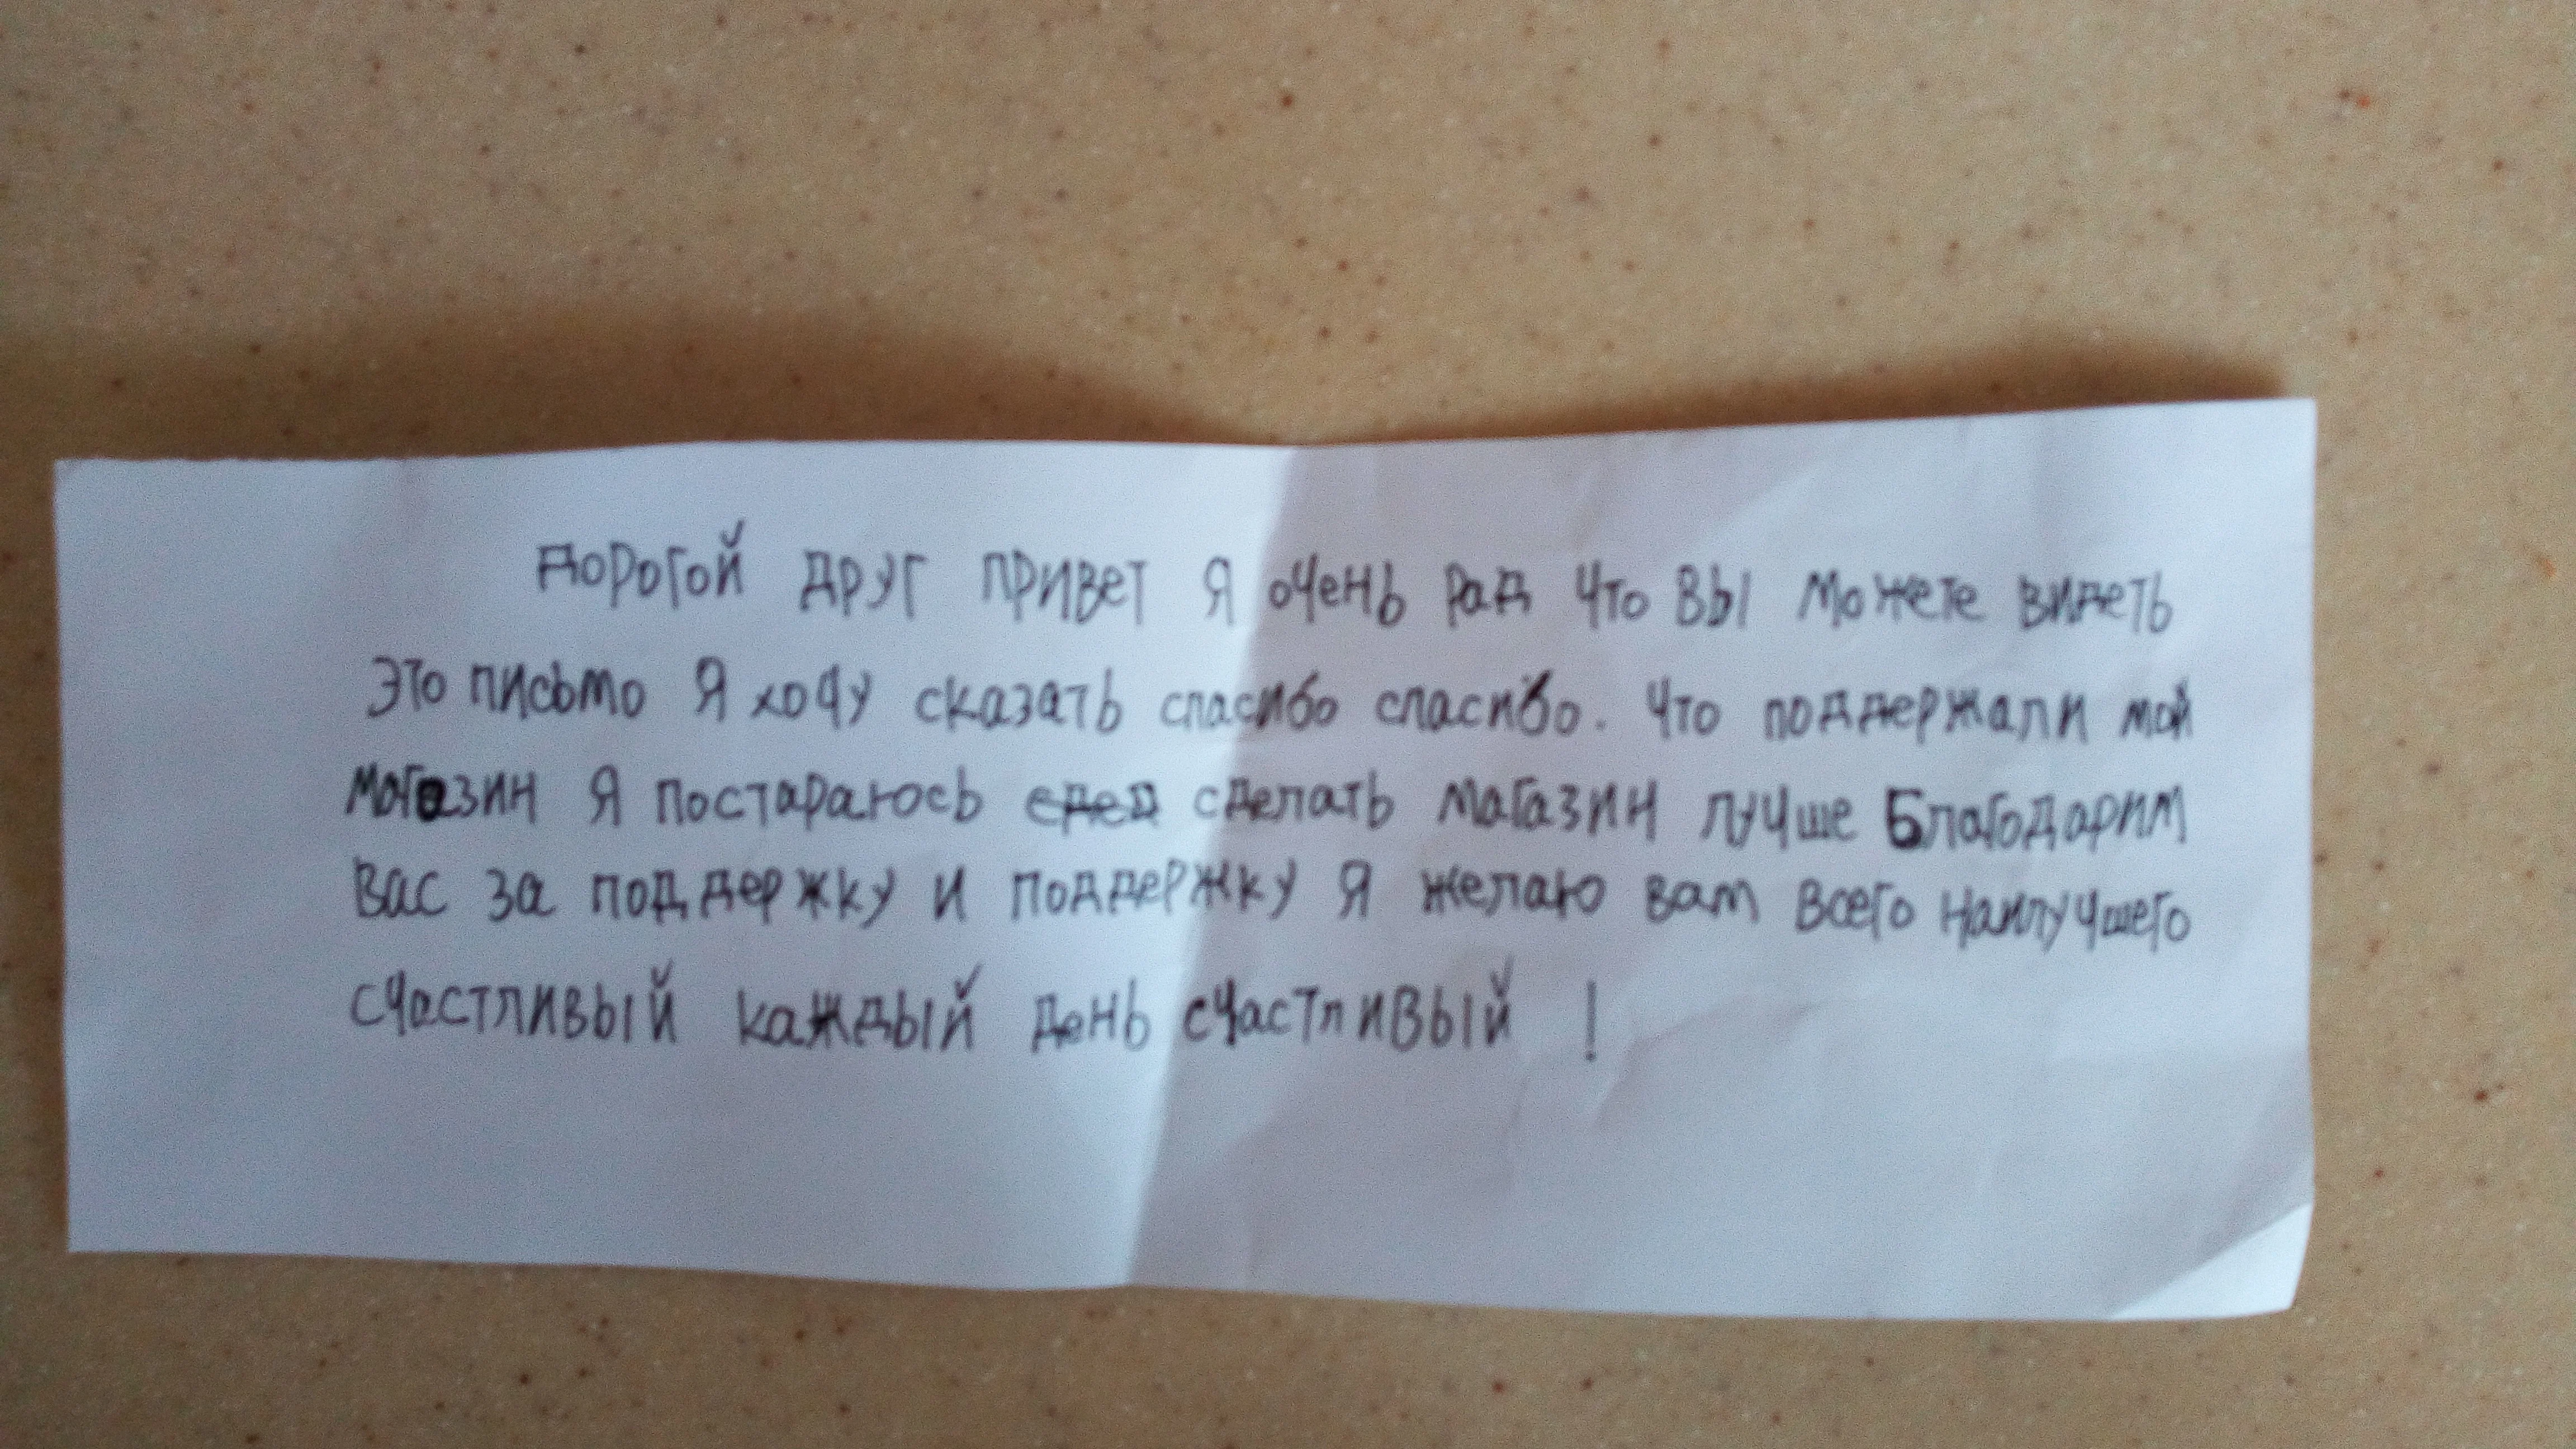 Дорогой друг привет Я очень рад что вы можете видеть
это письмо Я хочу сказать спасибо спасибо. что поддержали мой
магазин Я постараюсь сделать магазин лучше Благодарим
вас за поддержку и поддержку Я желаю вам всего наилучшего
счастливый каждый день счастливый !